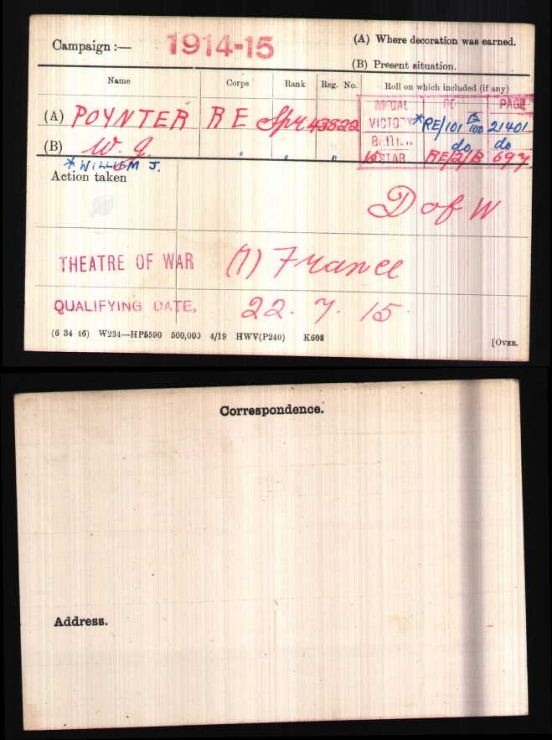 Campaign :— 1914-15
(A) Where decoration was earned.
(B) Present situation.
Name Corps Rank Reg. No. Roll on which included (if any)
MEDAL PAGE
(A) POYNTER R E Spr 43822 VICTORY *RE/101 B 100 21401
(B) W. J. " " " do do
* WILLIAM J. 15 STAR RE/2/B 697
Action taken
D of W
THEATRE OF WAR (1) France
QUALIFYING DATE. 22. 7. 15
(6 34 46) W234—HP5590 500,000 4/19 HWV(P240) K608 [OVER.
Correspondence.
Address.